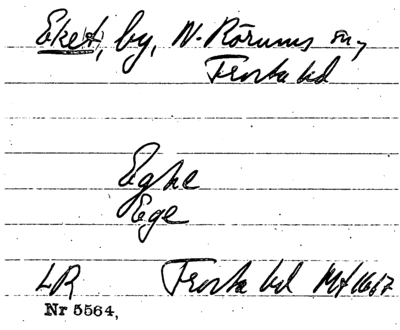 Eket, by, N. Rörums sn,
Frosta hd
Eghe
Ege
LR Frosta hd Mt 1667
Nr 5564,